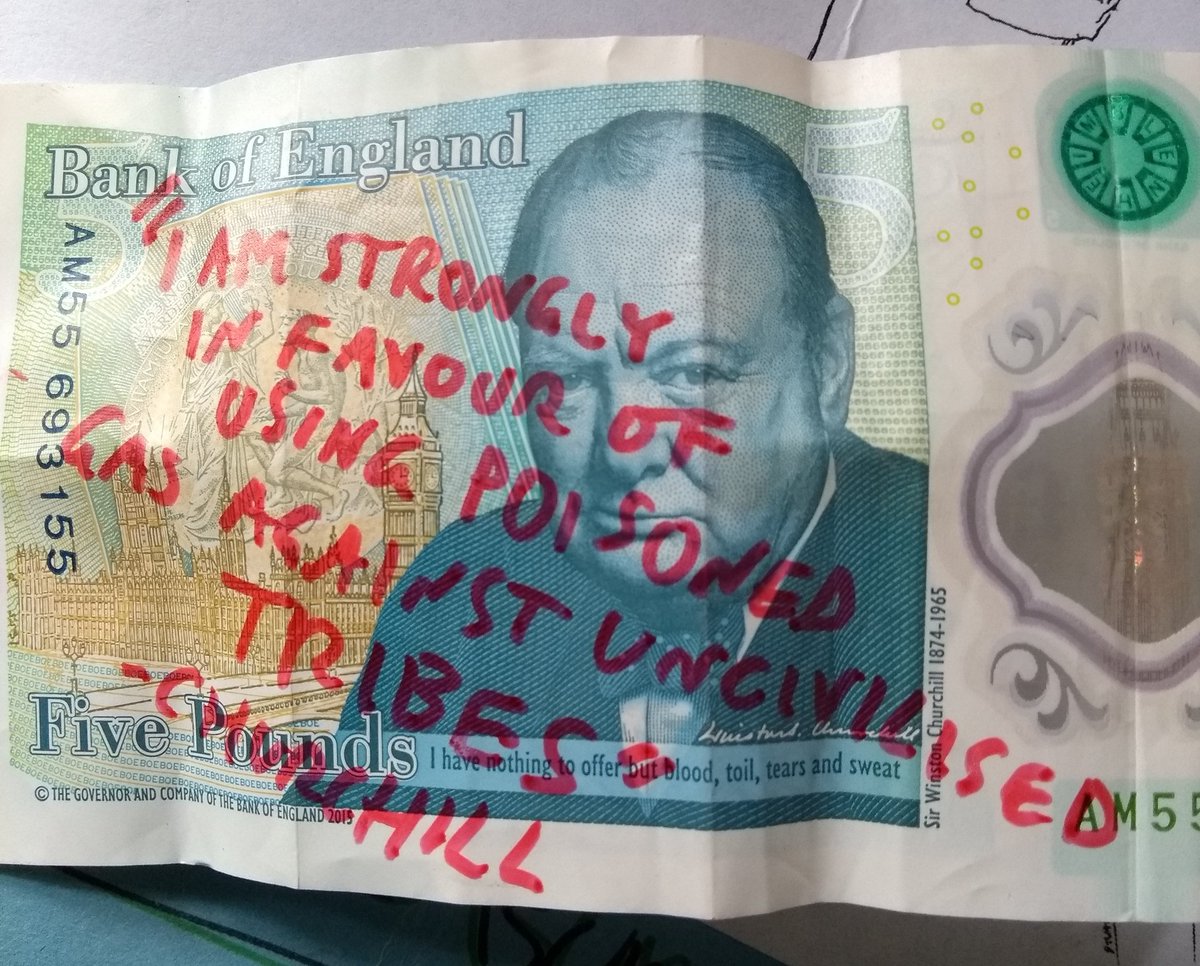 Bank of England
5
5
AM55 693155
"I AM STRONGLY
IN FAVOUR OF
USING POISONED
GAS AGAINST UNCIVILISED
TRIBES"
-CHURCHILL
Five Pounds
I have nothing to offer but blood, toil, tears and sweat
Winston S. Churchill
© THE GOVERNOR AND COMPANY OF THE BANK OF ENGLAND 2015
Sir Winston Churchill 1874-1965
BLENHEIM
AM55